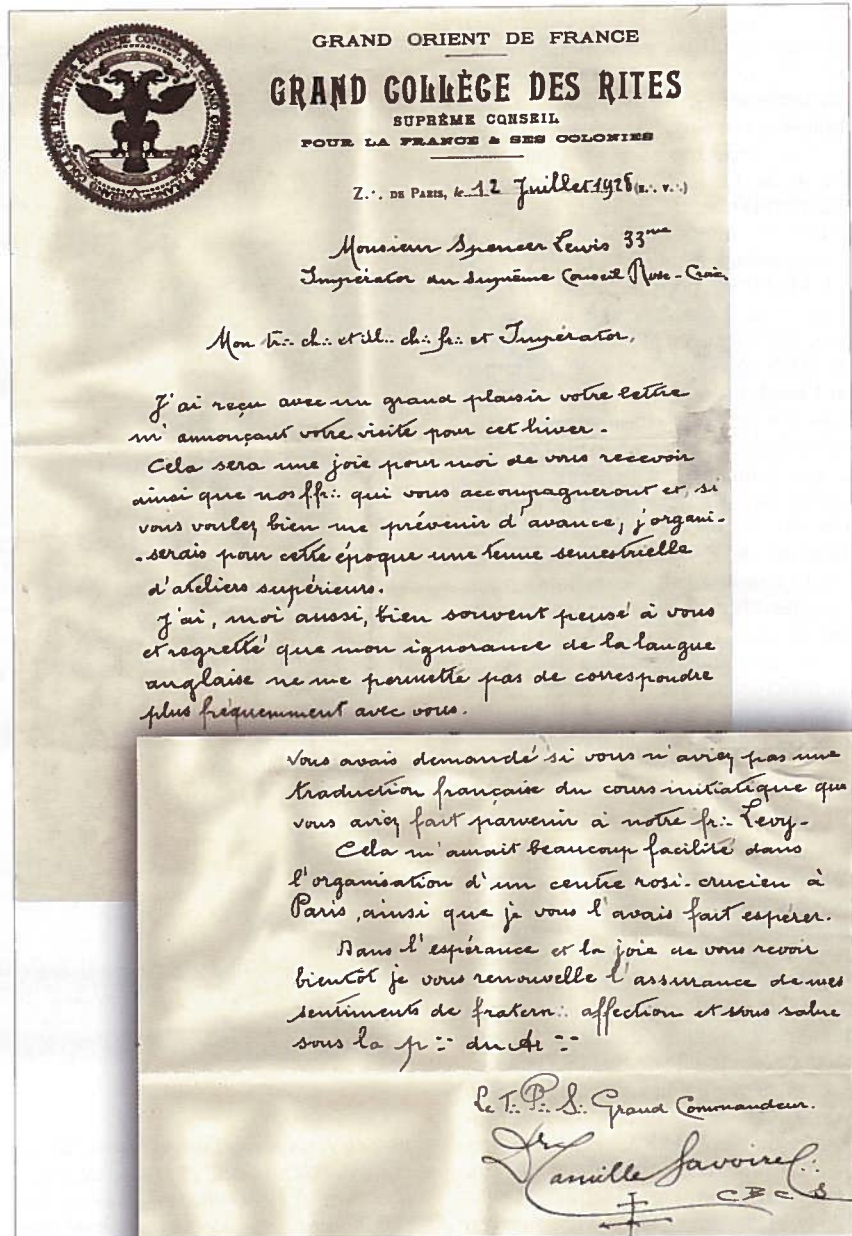 GRAND ORIENT DE FRANCE
GRAND COLLÈGE DES RITES
SUPRÊME CONSEIL
POUR LA FRANCE & SES COLONIES
Z∴ DE PARIS, le 12 Juillet 1928 (E∴ V∴)
Monsieur Spencer Lewis 33me
Impérator du Suprême Conseil Rose-Croix
Mon tr∴ ch∴ et ill∴ ch∴ fr∴ et Impérator,
J'ai reçu avec un grand plaisir votre lettre
m'annonçant votre visite pour cet hiver.
Cela sera une joie pour moi de vous recevoir
ainsi que nos ffr∴ qui vous accompagneront et, si
vous voulez bien me prévenir d'avance, j'organi-
-serais pour cette époque une tenue semestrielle
d'ateliers supérieurs.
J'ai, moi aussi, bien souvent pensé à vous
et regretté que mon ignorance de la langue
anglaise ne me permette pas de correspondre
plus fréquemment avec vous.
vous avais demandé si vous n'aviez pas une
traduction française du cours initiatique que
vous aviez fait parvenir à notre fr∴ Levy-
Cela m'aurait beaucoup facilité dans
l'organisation d'un centre rosi-crucien à
Paris, ainsi que je vous l'avais fait espérer.
Dans l'espérance et la joie de vous revoir
bientôt je vous renouvelle l'assurance de mes
sentiments de fratern∴ affection et vous salue
sous la p∷ du
Le T∴ P∴ S∴ Grand Commandeur.
Dr Camille Savoire
C B C S